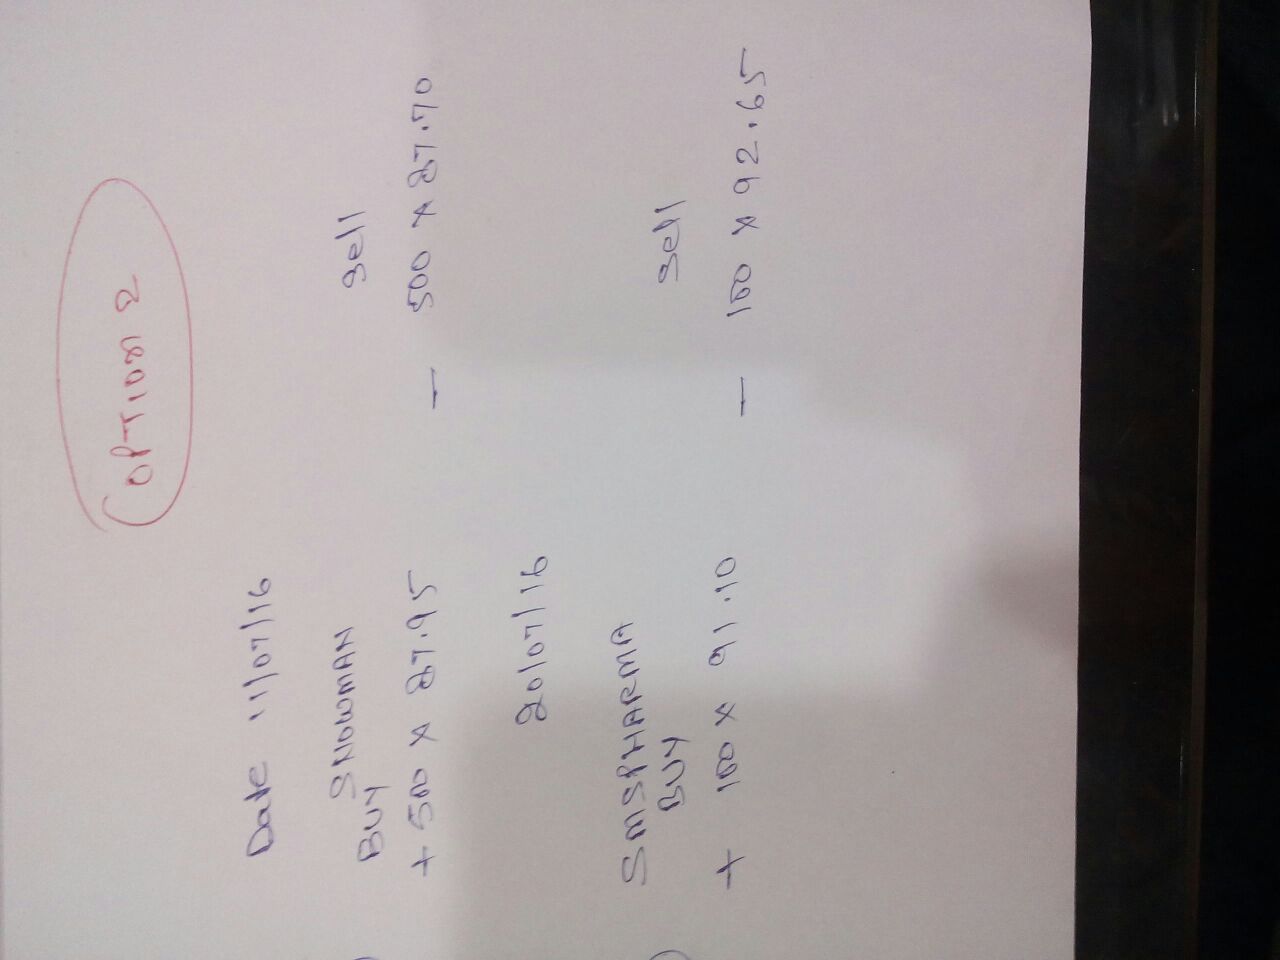 OPTION 2
Date 11/07/16
SNOWMAN
BUY sell
+ 500 x 27.95 — 500 x 27.70
20/07/16
SMSPHARMA
BUY sell
+ 100 x 91.10 — 100 x 92.65